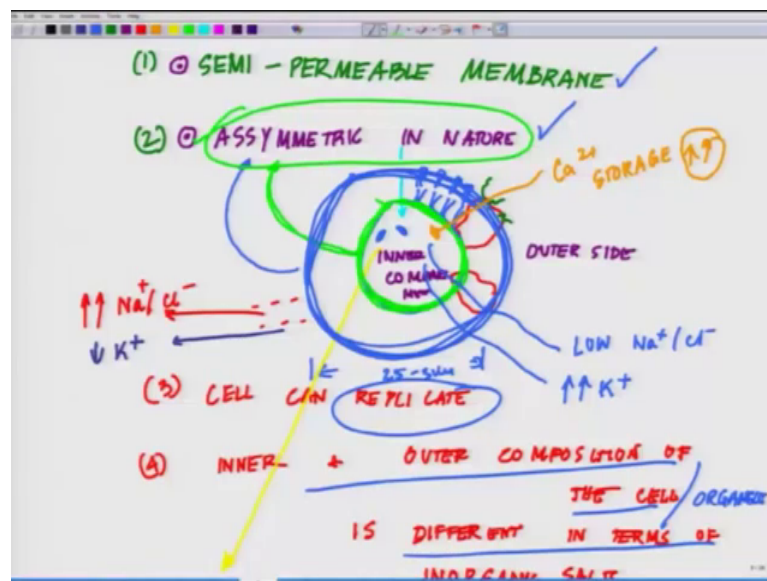 (1) SEMI - PERMEABLE MEMBRANE
(2) ASSYMMETRIC IN NATURE
Ca²⁺
STORAGE ↑↑
INNER
OUTER SIDE
↑↑ Na⁺/Cl⁻
↓ K⁺
LOW Na⁺/Cl⁻
↑↑ K⁺
(3) CELL CAN REPLICATE
(4) INNER + OUTER COMPOSITION OF
THE CELL/
IS DIFFERENT IN TERMS OF
INORGANIC SALT